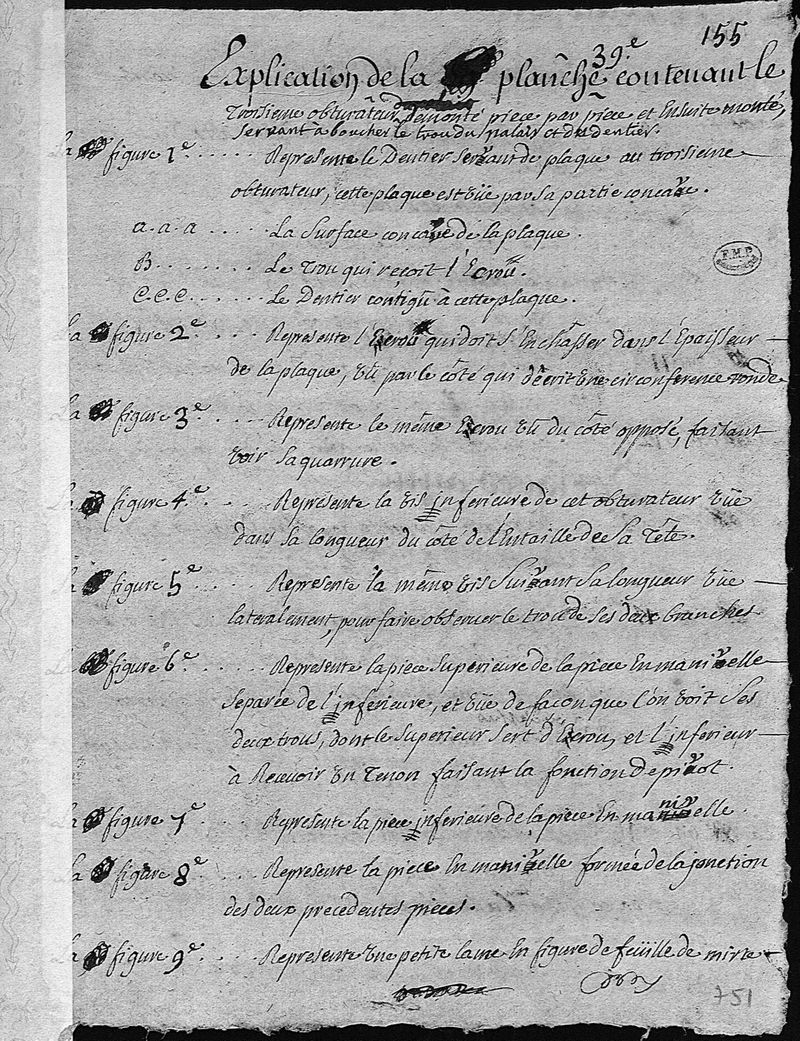 155
Explication de la 39.e planche contenant le
Troisieme obturateur demonté piece par piece et Ensuite monté,
servant à boucher le trou du palais et du dentier.
La figure 1.e ...... Represente le Dentier servant de plaque au troisieme
obturateur, cette plaque est vüe par sa partie concave.
a. a. a ..... La Surface concave de la plaque.
B. ....... Le Trou qui recoit l'Ecroü.
C. C. C. ..... Le Dentier contigü à cette plaque.
La figure 2.e .... Represente l'Ecrou qui doit s'Enchâsser dans l'Epaisseur
de la plaque, vû par le côté qui décrit une circonference ronde
La figure 3.e .... Represente le même Ecrou vû du côté opposé, faisant
voir sa quarrure.
La figure 4.e .... Represente la vis inferieure de cet obturateur vüe
dans sa longueur du côté de l'Entaille de sa Tête.
La figure 5.e .... Represente la même vis suivant sa longueur vüe
lateralement, pour faire observer le trou de ses deux branches
La figure 6.e .... Represente la piece superieure de la piece En manivelle
separée de l'inferieure, et vüe de façon que l'on voit ses
deux trous, dont le superieur sert d'Ecrou, et l'inferieur
à Recevoir un Tenon faisant la fonction de pivot.
La figure 7.e .... Represente la piece inferieure de la piece En manivelle.
La figure 8.e .... Represente la piece En manivelle formée de la jonction
des deux precedentes pieces.
La figure 9.e .... Represente une petite lame En figure de feüille de mirte
751